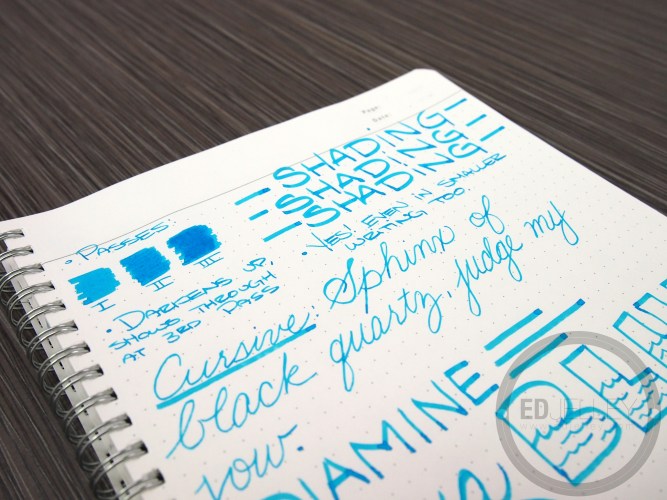 Page
Date
- SHADING -
- SHADING -
- SHADING -
• YES! EVEN IN SMALLER
WRITING TOO.
• PASSES:
I II III
• DARKENS UP,
SHOWS THROUGH
AT 3RD PASS
Cursive: Sphinx of
black quartz, judge my
vow.
DIAMINE
ED JELLEY